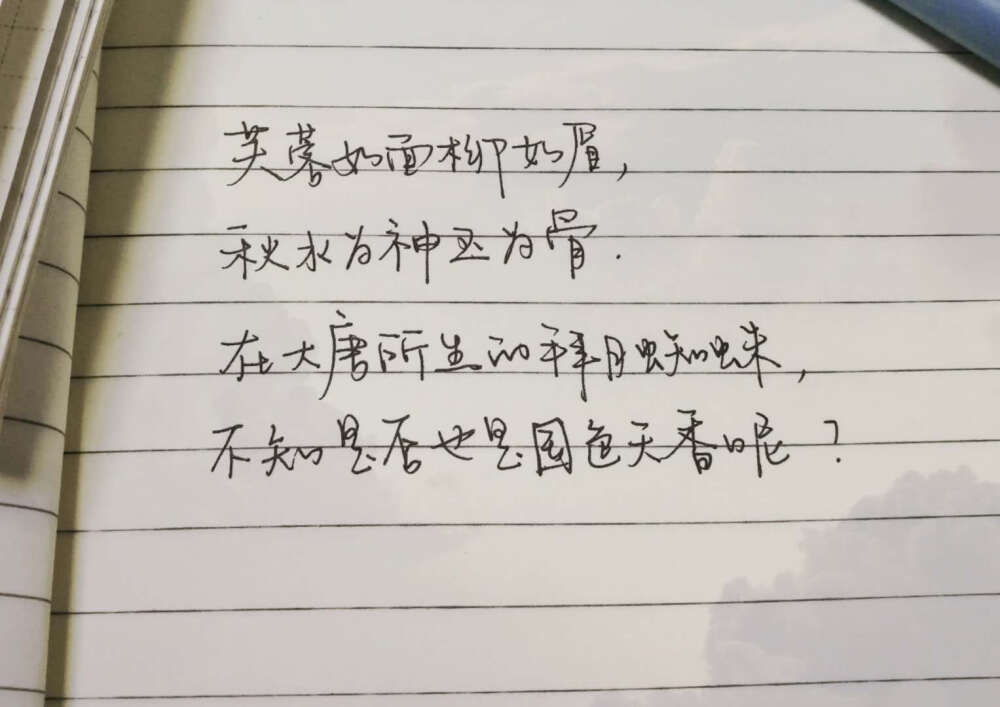 芙蓉如面柳如眉，
秋水为神玉为骨.
在大唐所生的拜月蜘蛛，
不知是否也是国色天香呢？